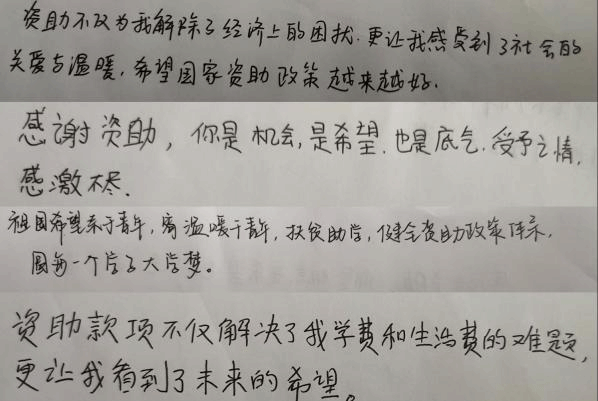 资助不仅为我解除了经济上的困扰.更让我感受到了社会的
关爱与温暖,希望国家资助政策越来越好.
感谢资助,你是机会,是希望.也是底气.受予之情,
感激不尽.
祖国希望系于青年,寄温暖于青年,扶贫助学,健全资助政策体系,
圆每一个学子大学梦。
资助款项不仅解决了我学费和生活费的难题,
更让我看到了未来的希望。